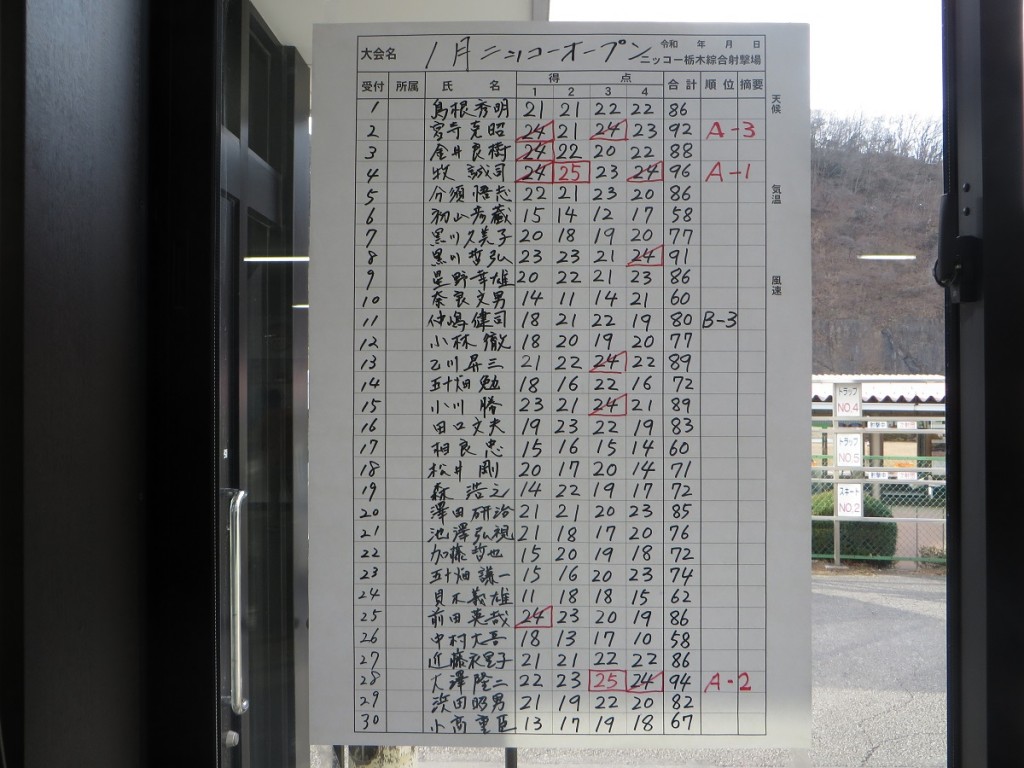 大会名 1月ニッコーオープン 令和 年 月 日
ニッコー栃木綜合射撃場
受付 所属 氏 名 得 点 合計 順位 摘要
1 2 3 4
1 島根秀明 21 21 22 22 86
2 宮寺克昭 24 21 24 23 92 A-3
3 金井良樹 24 22 20 22 88
4 牧 誠司 24 25 23 24 96 A-1
5 分須悟志 22 21 23 20 86
6 初山彦蔵 15 14 12 17 58
7 黒川久美子 20 18 19 20 77
8 黒川哲弘 23 23 21 24 91
9 星野幸雄 20 22 21 23 86
10 奈良文男 14 11 14 21 60
11 仲嶋健司 18 21 22 19 80 B-3
12 小林 徹 18 20 19 20 77
13 乙川昇三 21 22 24 22 89
14 五十畑 勉 18 16 22 16 72
15 小川 勝 23 21 24 21 89
16 田口文夫 19 23 22 19 83
17 相良 忠 15 16 15 14 60
18 松井 剛 20 17 20 14 71
19 森 浩之 14 22 19 17 72
20 澤田研治 21 21 20 23 85
21 池澤弘視 21 18 17 20 76
22 加藤哲也 15 20 19 18 72
23 五十畑謙一 15 16 20 23 74
24 貝木義雄 11 18 18 15 62
25 前田英哉 24 23 20 19 86
26 中村大吾 18 13 17 10 58
27 近藤衣里子 21 21 22 22 86
28 大澤隆二 22 23 25 24 94 A-2
29 浜田昭男 21 19 22 20 82
30 小高重臣 13 17 19 18 67
天候
気温
風速
トラップ
NO.4
トラップ
NO.5
スキート
NO.2